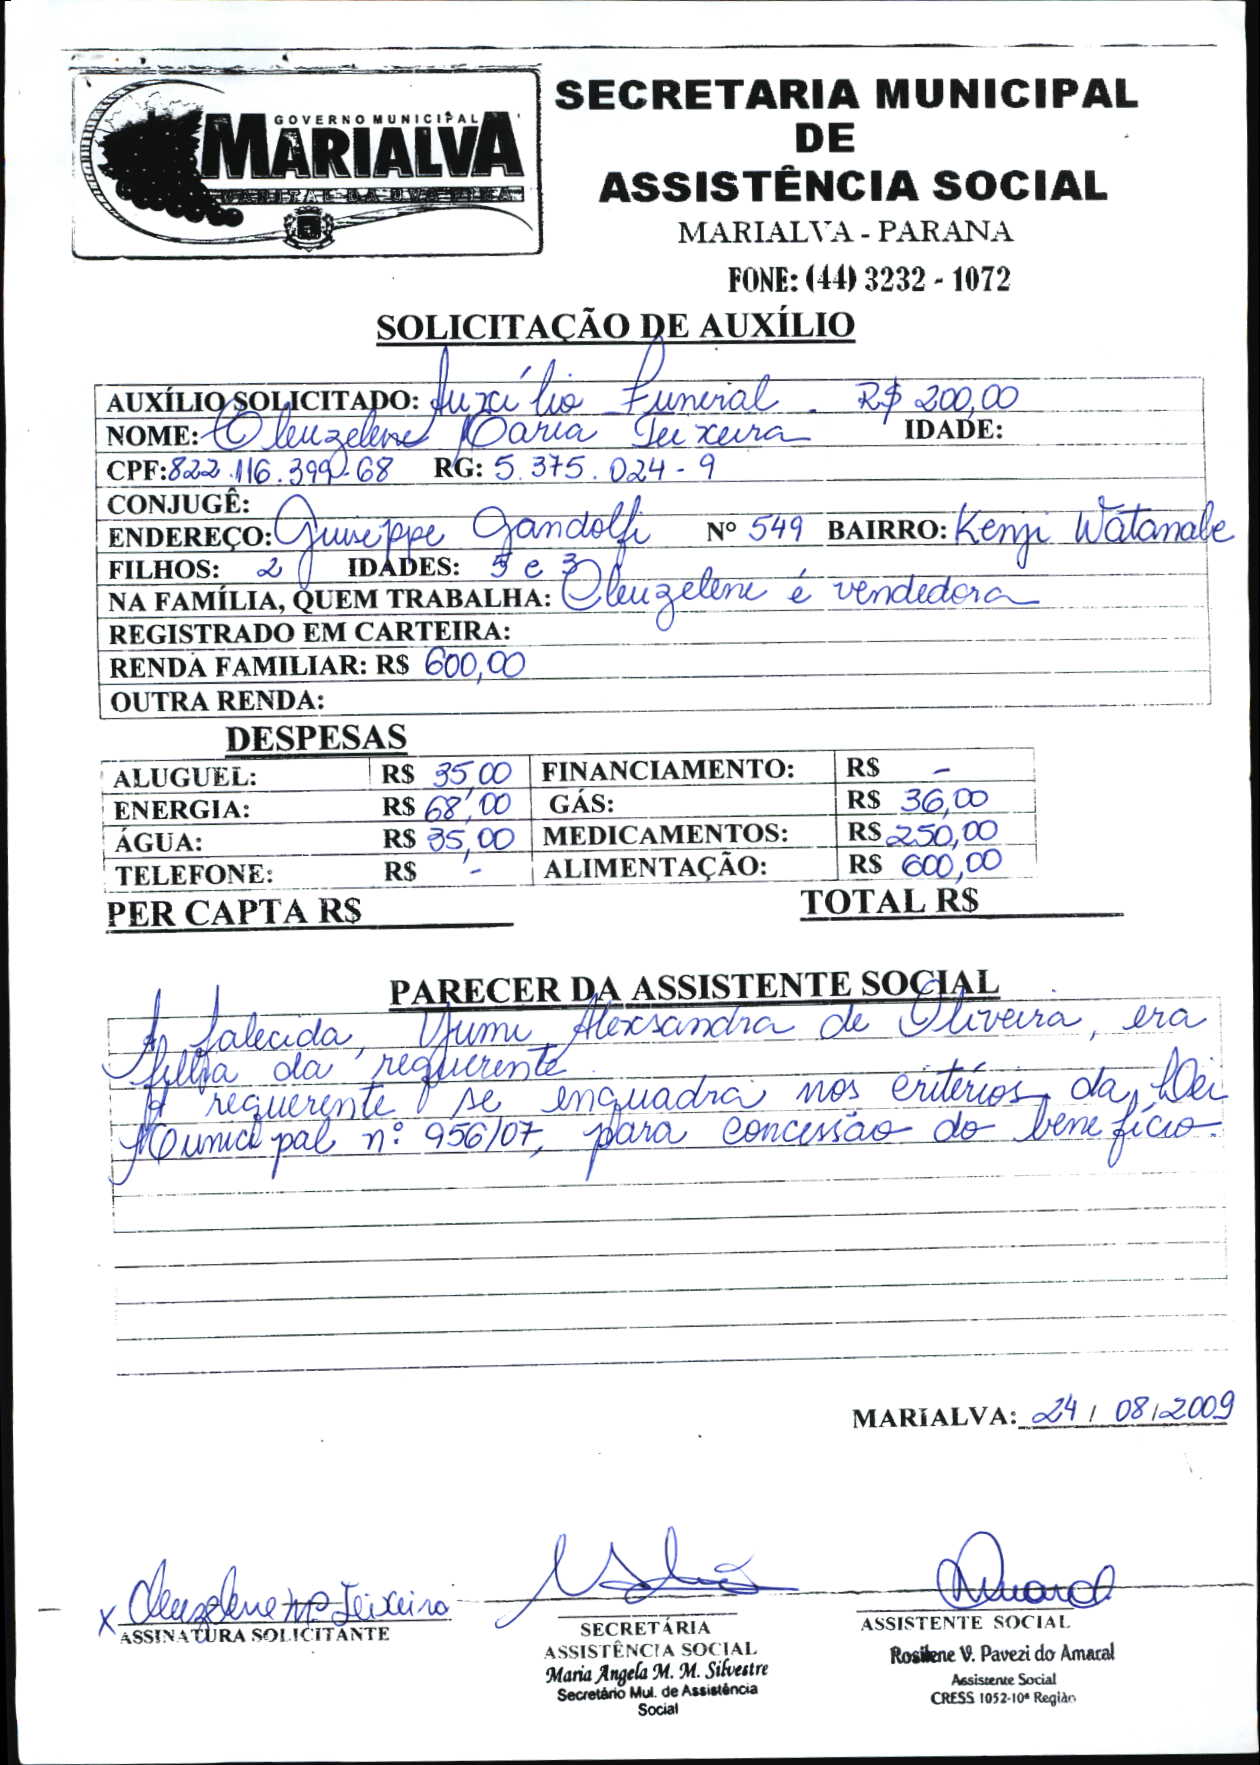 GOVERNO MUNICIPAL
MARIALVA
SECRETARIA MUNICIPAL
DE
ASSISTÊNCIA SOCIAL
MARIALVA - PARANA
FONE: (44) 3232 - 1072
SOLICITAÇÃO DE AUXÍLIO
AUXÍLIO SOLICITADO: Auxílio Funeral. R$ 200,00
NOME: Cleuzelene Maria Teixeira IDADE:
CPF: 822.116.399-68 RG: 5.375.024-9
CONJUGÊ:
ENDEREÇO: Giuseppe Gandolfi Nº 549 BAIRRO: Kenji Watanabe
FILHOS: 2 IDADES: 5 e 3
NA FAMÍLIA, QUEM TRABALHA: Cleuzelene é vendedora
REGISTRADO EM CARTEIRA:
RENDA FAMILIAR: R$ 600,00
OUTRA RENDA:
DESPESAS
ALUGUEL: R$ 35,00 FINANCIAMENTO: R$ -
ENERGIA: R$ 68,00 GÁS: R$ 36,00
ÁGUA: R$ 35,00 MEDICAMENTOS: R$ 250,00
TELEFONE: R$ - ALIMENTAÇÃO: R$ 600,00
PER CAPTA R$ TOTAL R$
PARECER DA ASSISTENTE SOCIAL
A falecida, Yumi Alexsandra de Oliveira, era
filha da requerente.
A requerente se enquadra nos critérios da Lei
Municipal nº 956/07, para concessão do benefício.
MARIALVA: 24 / 08 / 2009
x Cleuzelene Mª Teixeira
ASSINATURA SOLICITANTE
SECRETÁRIA
ASSISTÊNCIA SOCIAL
Maria Angela M. M. Silvestre
Secretário Mul. de Assistência
Social
ASSISTENTE SOCIAL
Rosilene V. Pavezi do Amaral
Assistente Social
CRESS 1052-10ª Região